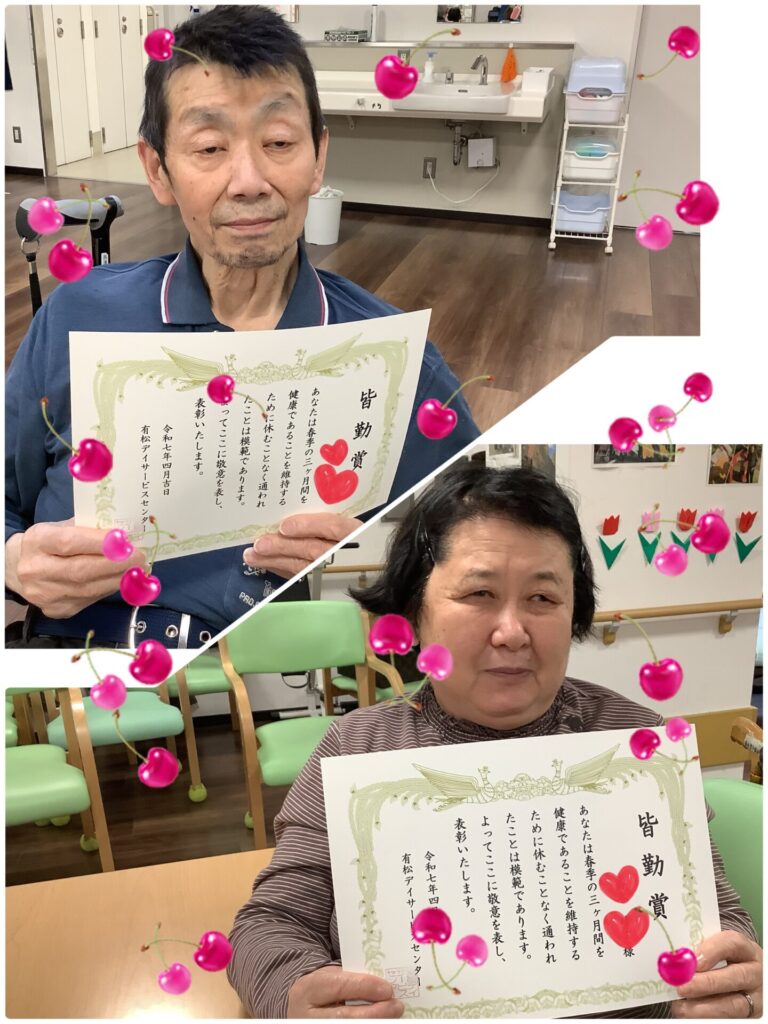 皆勤賞
あなたは春季の三ヶ月間を
健康であることを維持する
ために休むことなく通われ
たことは模範であります。
よってここに敬意を表し、
表彰いたします。
令和七年四月吉日
有松デイサービスセンター
PRO
皆勤賞
様
あなたは春季の三ヶ月間を
健康であることを維持する
ために休むことなく通われ
たことは模範であります。
よってここに敬意を表し、
表彰いたします。
令和七年四
有松デイサービスセンター